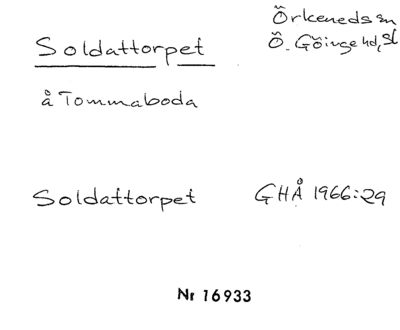 Soldattorpet
Örkeneds sn
Ö. Göinge hd, sk
å Tommaboda
Soldattorpet GHÅ 1966:29
Nr 16933